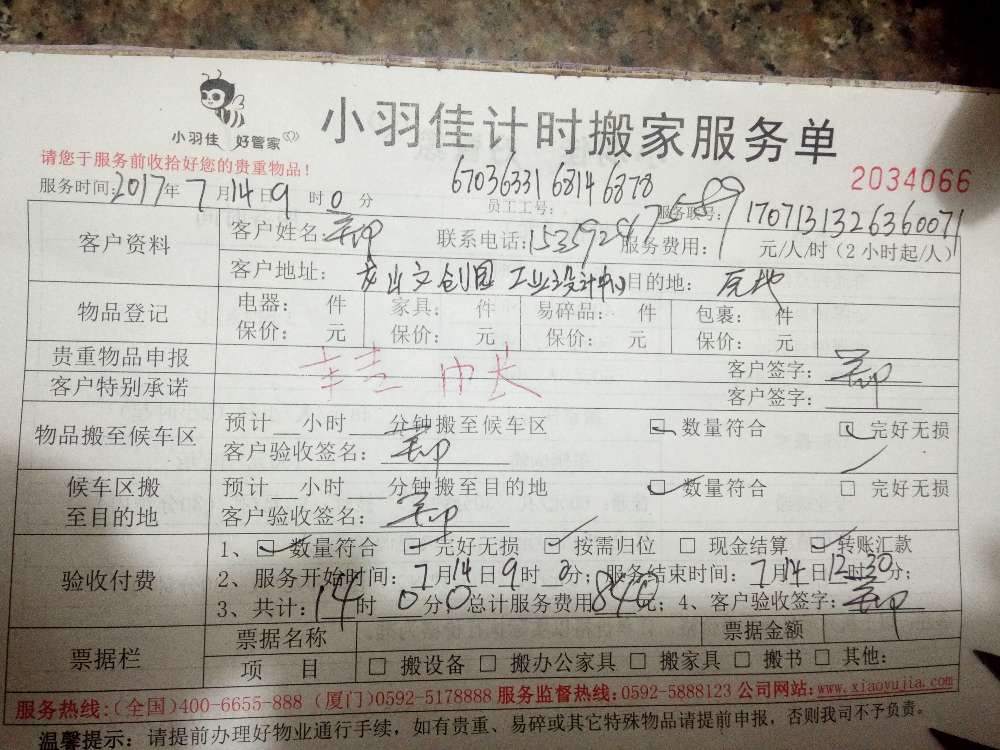 小羽佳 好管家
小羽佳计时搬家服务单
请您于服务前收拾好您的贵重物品！
2034066
67036331 6814 6878
服务时间:2017年7月14日9时0分 员工工号: 7589 服务联号: 1707131326360071
客户资料 客户姓名: 联系电话: 服务费用: 元/人/时（2小时起/人）
客户地址： 龙山文创园 工业设计中心 目的地： 原地
物品登记 电器： 件 家具： 件 易碎品： 件 包裹： 件
保价： 元 保价： 元 保价： 元 保价： 元
贵重物品申报 客户签字：
客户特别承诺 客户签字：
物品搬至候车区 预计__小时__分钟搬至候车区 ☑ 数量符合 ☑ 完好无损
客户验收签名：
候车区搬至目的地 预计__小时__分钟搬至目的地 ☑ 数量符合 □ 完好无损
客户验收签名：
验收付费 1、☑ 数量符合 ☑ 完好无损 ☑ 按需归位 □ 现金结算 ☑ 转账汇款
2、服务开始时间：7月14日9时0分；服务结束时间：7月14日12时30分；
3、共计：14时0分 总计服务费用840元；4、客户验收签字：
票据栏 票据名称 票据金额
项 目 □ 搬设备 □ 搬办公家具 □ 搬家具 □ 搬书 □ 其他：
服务热线:(全国)400-6655-888 (厦门)0592-5178888 服务监督热线:0592-5888123 公司网站:www.xiaoyujia.com
温馨提示：请提前办理好物业通行手续，如有贵重、易碎或其它特殊物品请提前申报，否则我司不予负责。